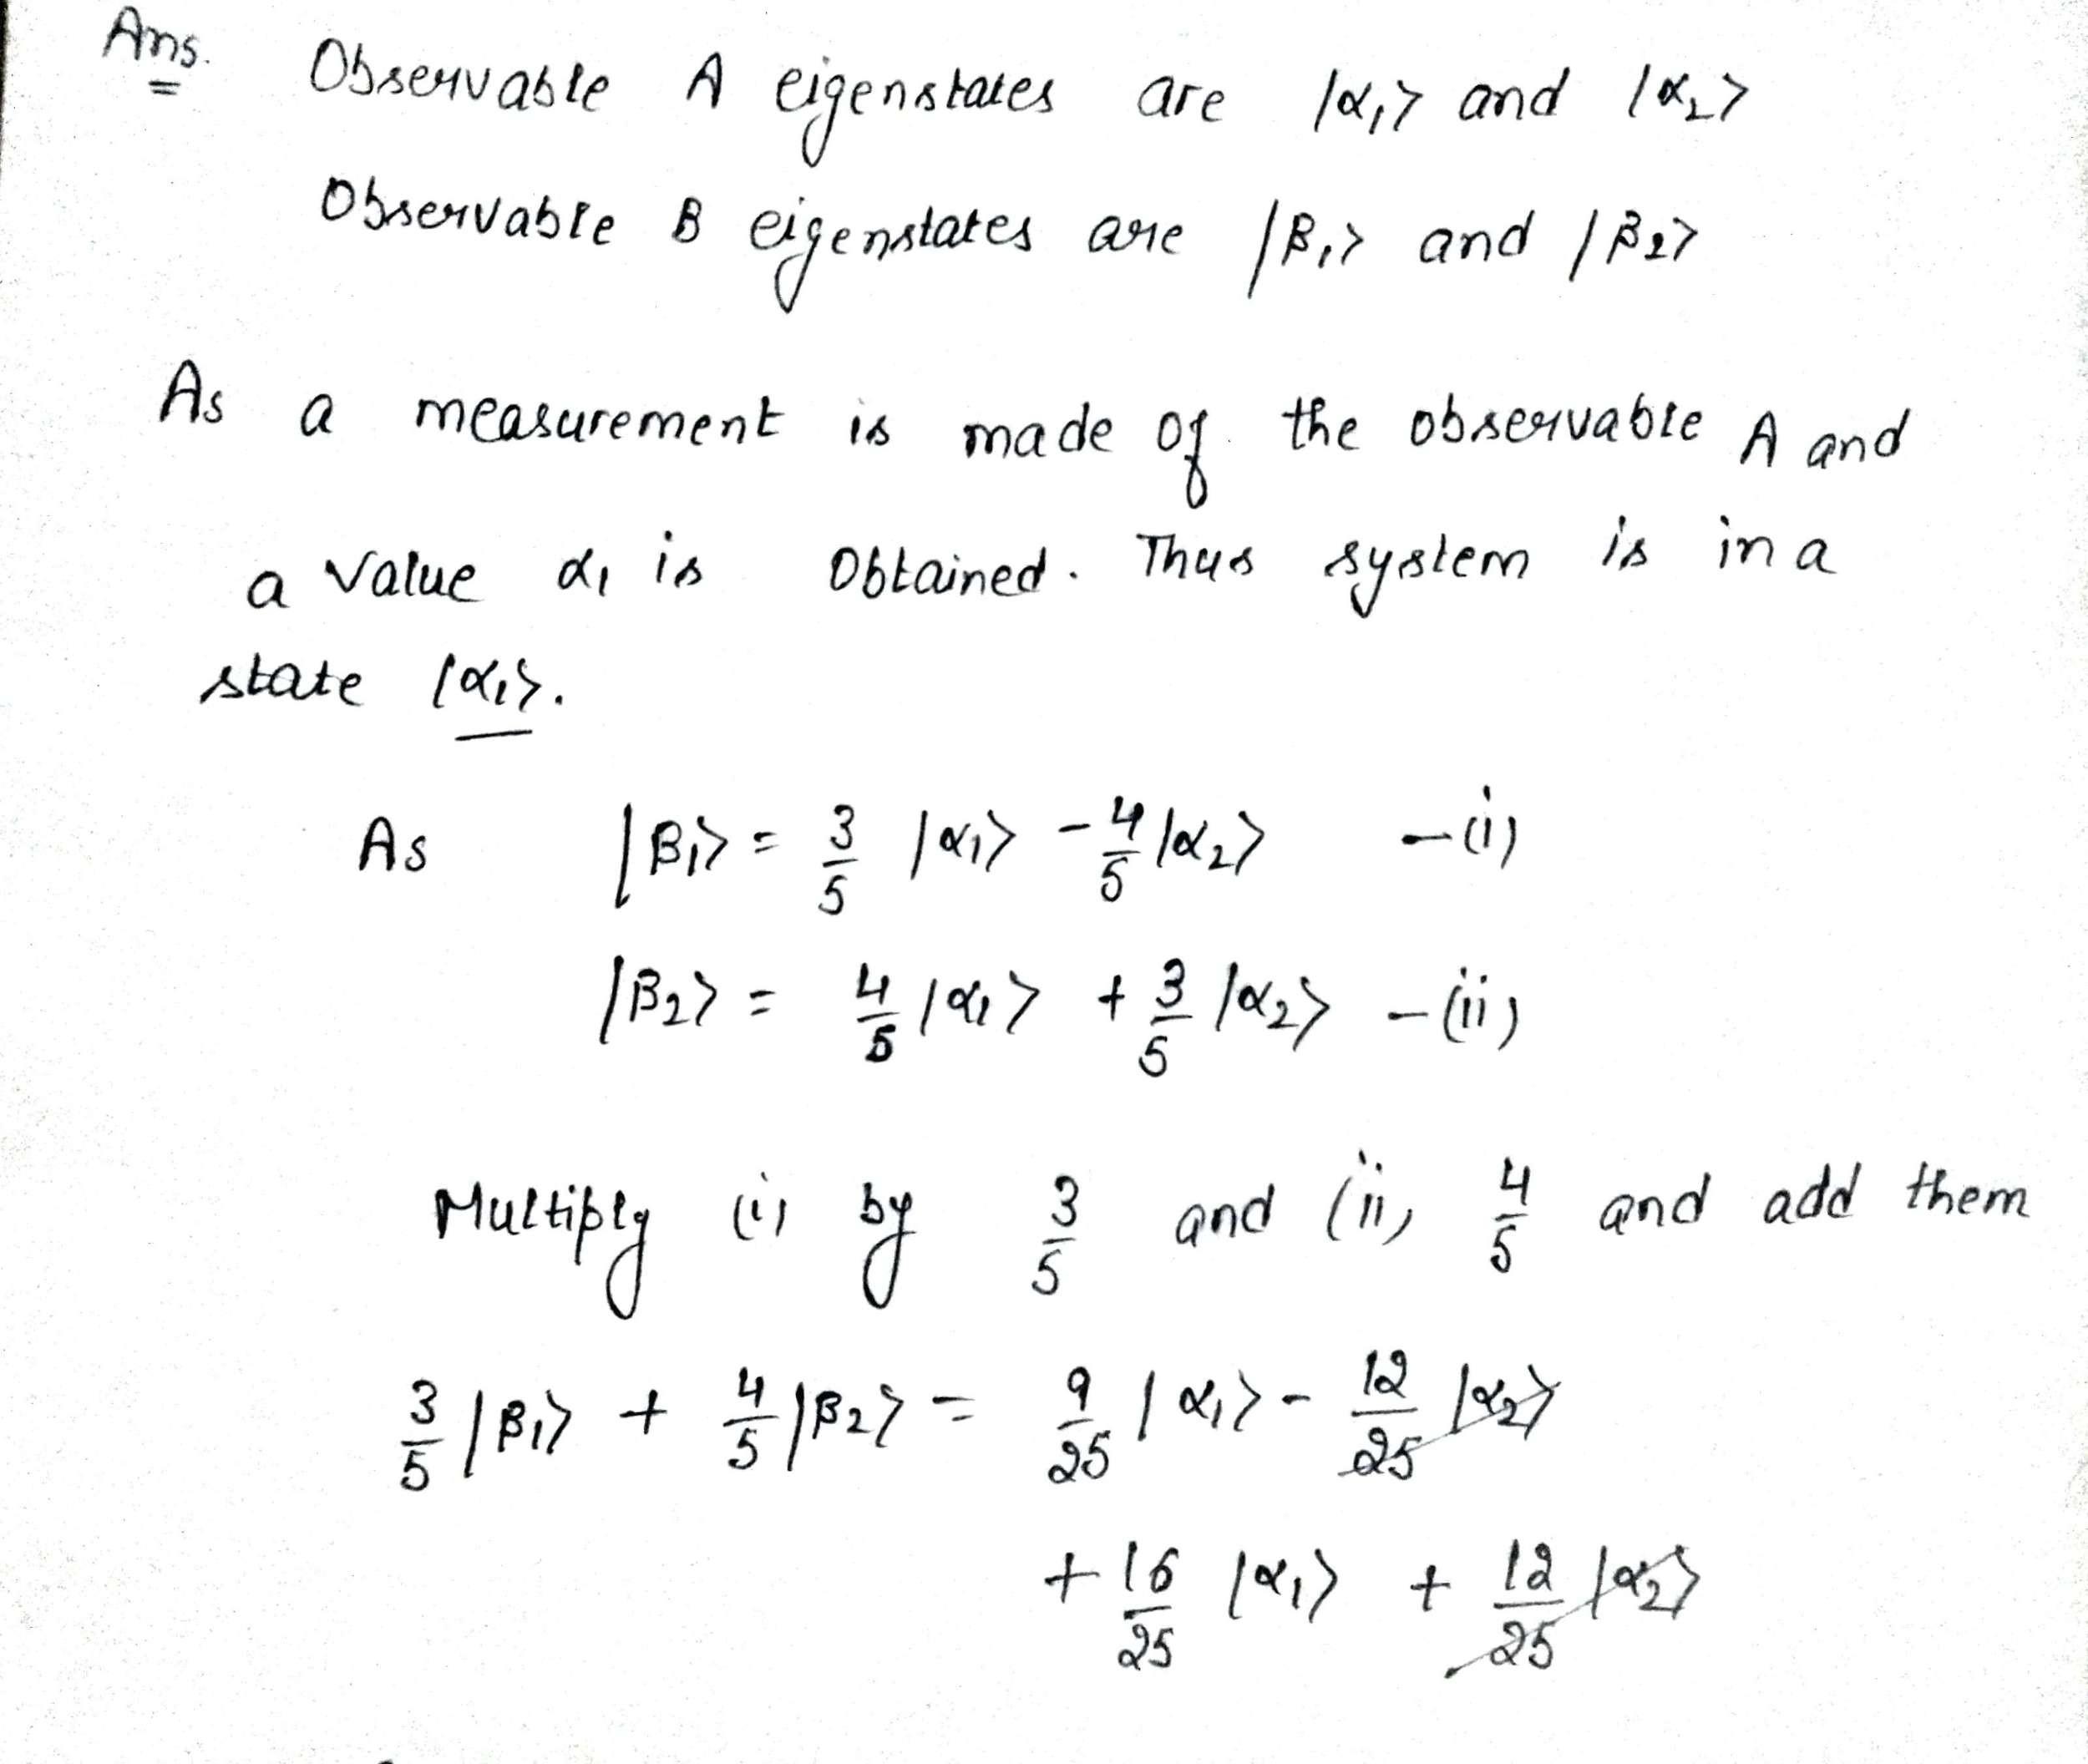 Ans. Observable A eigenstates are |α₁> and |α₂>
Observable B eigenstates are |β₁> and |β₂>
As a measurement is made of the observable A and
a value α₁ is obtained. Thus system is in a
state |α₁>.
As |β₁> = 3/5 |α₁> - 4/5 |α₂> - (i)
|β₂> = 4/5 |α₁> + 3/5 |α₂> - (ii)
Multiply (i) by 3/5 and (ii) 4/5 and add them
3/5 |β₁> + 4/5 |β₂> = 9/25 |α₁> - 12/25 |α₂>
+ 16/25 |α₁> + 12/25 |α₂>